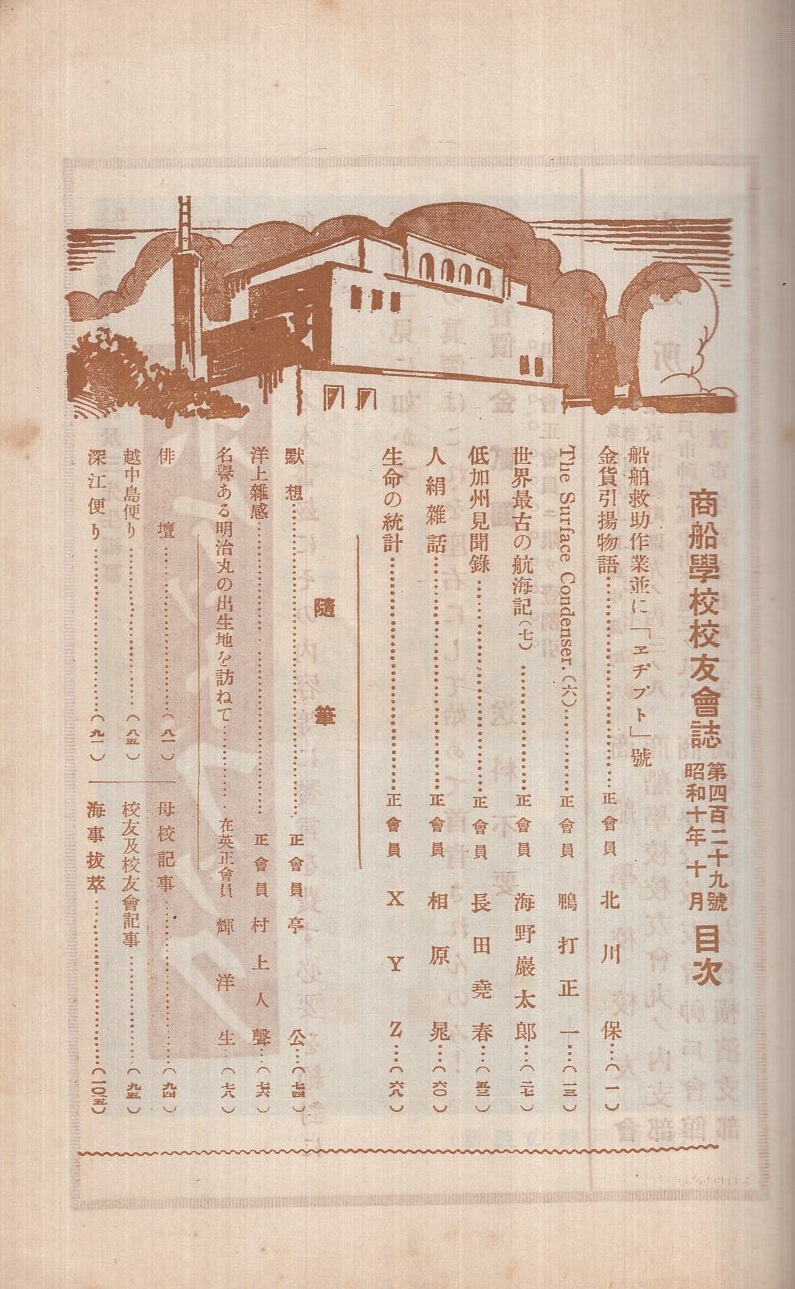 商船學校校友會誌 第四百二十九號 昭和十年十月 目次
船舶救助作業並に「ヱヂプト」號
金貨引揚物語…正會員 北川保…(一)
The Surface Condenser.(六)…正會員 鴨打正一…(一三)
世界最古の航海記(七)…正會員 海野巖太郎…(二七)
低加州見聞錄…正會員 長田堯春…(五三)
人絹雜話…正會員 相原晃…(六〇)
生命の統計…正會員 XYZ…(六八)
隨筆
默想…正會員 亭公…(七四)
洋上雜感…正會員 村上人聲…(七六)
名譽ある明治丸の出生地を訪ねて…在英正會員 輝洋生…(七八)
俳壇…(八一)
越中島便り…(八五)
深江便り…(九一)
母校記事…(九四)
校友及校友會記事…(九五)
海事拔萃…(一〇五)